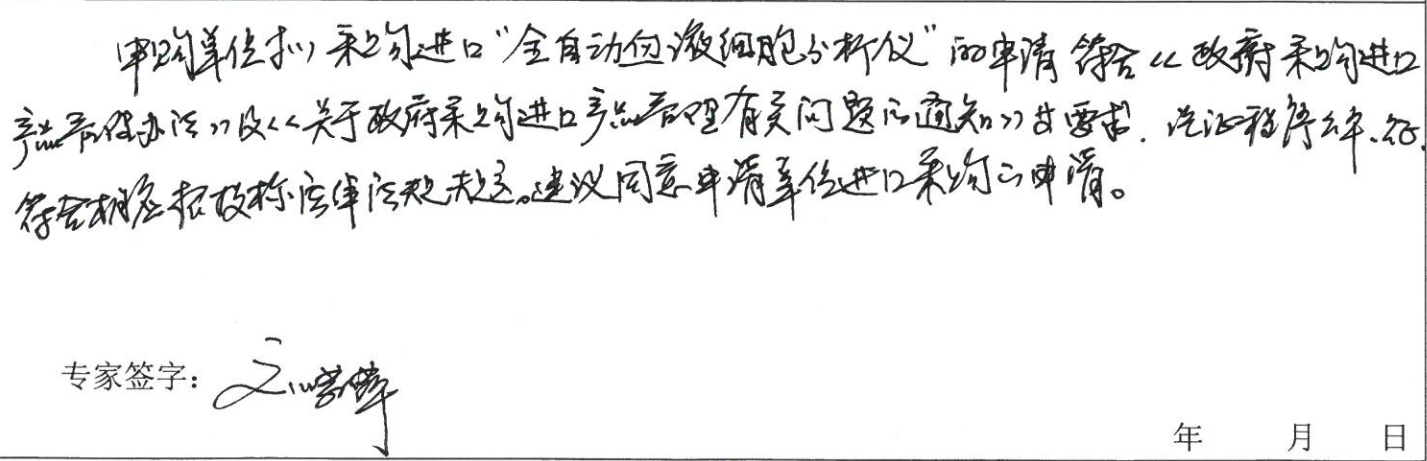 申购单位拟采购进口“全自动血液细胞分析仪”的申请符合《政府采购进口
产品管理办法》及《关于政府采购进口产品管理有关问题的通知》的要求.论证程序公平、公正,
符合相应招投标法律法规规定。建议同意申请单位进口采购的申请。
专家签字:
年 月 日